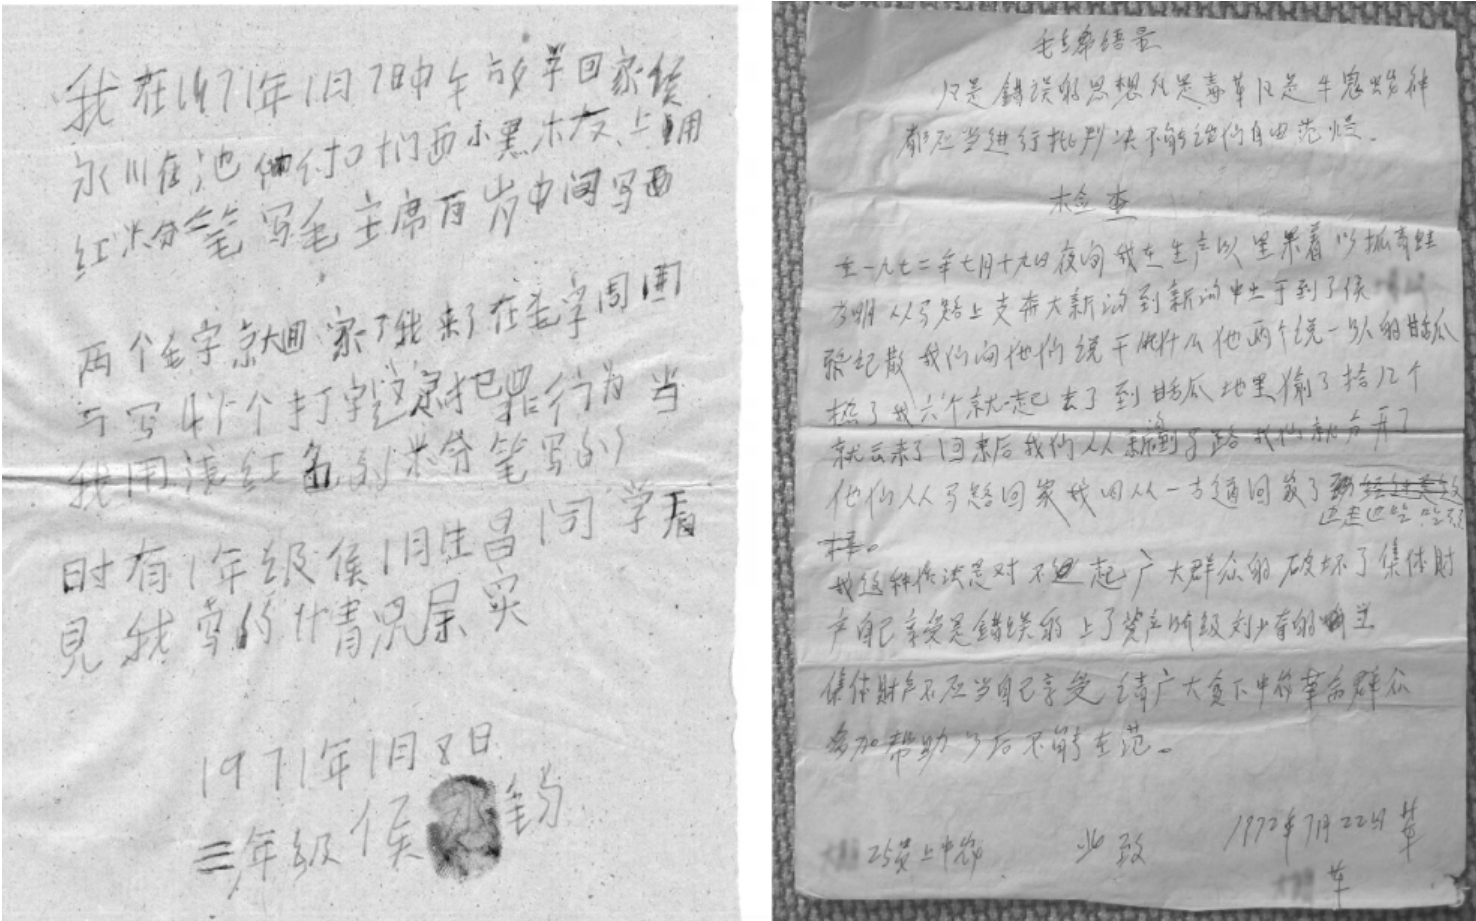 我在1971年1月7日中午放羊回家侯
永川在池仲付口门西小黑木友上用
红米分笔写毛主席万岁中间写西
两个字就回家了我来了在毛字周围
写4个打字这是犯罪行为当
我用浅红色的米分笔写的
时有1年级侯月生昌同学看
见我写的情况属实
1971年1月8日
三年级侯
毛主席语录
凡是错误的思想凡是毒草凡是牛鬼蛇神
都应当进行批判决不能让他们自由泛烂。
检查
在一九七二年七月十九日夜间我在生产队里果着以抓青蛙
为明从马路上支奔大新沟到新沟中土于到了侯
我们问他们说干什么他两个说一队的甘瓜
熟了我六个就一起去了到甜瓜地里偷了拾几个
就云来了回来后我们从新沟到了路我们就分开了
他们从马路回家我四从一古道回家了
边走边吃
样。
我这种作法是对不起广大群众的破坏了集体财
产自己享受是错误的上了资产阶级刘少奇的当
集体财产不应当自己享受请广大贫下中农革命群众
多加帮助以后不能在范。
25岁上中农 此致 1972年7月22日